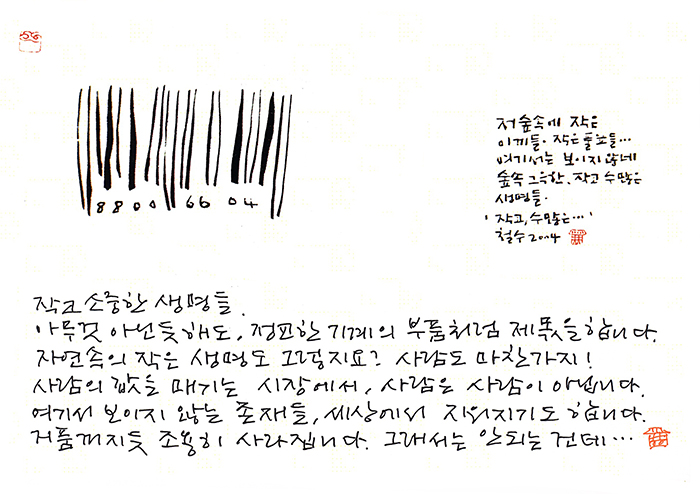 8800 6604
저 숲속에 작은
이끼들. 작은 풀포들…
여기서는 보이지 않네
숲속 그윽한, 작고 수많은
생명들.
'작고, 수많은…'
철수 2004
작고 소중한 생명들.
아무것 아닌듯해도, 정교한 기계의 부품처럼 제 몫을 합니다.
자연속의 작은 생명도 그렇지요? 사람도 마찬가지!
사람의 값을 매기는 시장에서, 사람은 사람이 아닙니다.
여기서 보이지 않는 존재들, 세상에서 지워지기도 합니다.
거품꺼지듯 조용히 사라집니다. 그래서는 안되는 건데…